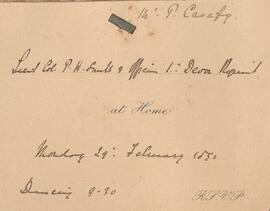 Mr. P. Casafy.
Lieut Col. P. H. & Officers 1st Devon Regiment
at Home
Monday 29th February
Dancing 9-30
R.S.V.P.